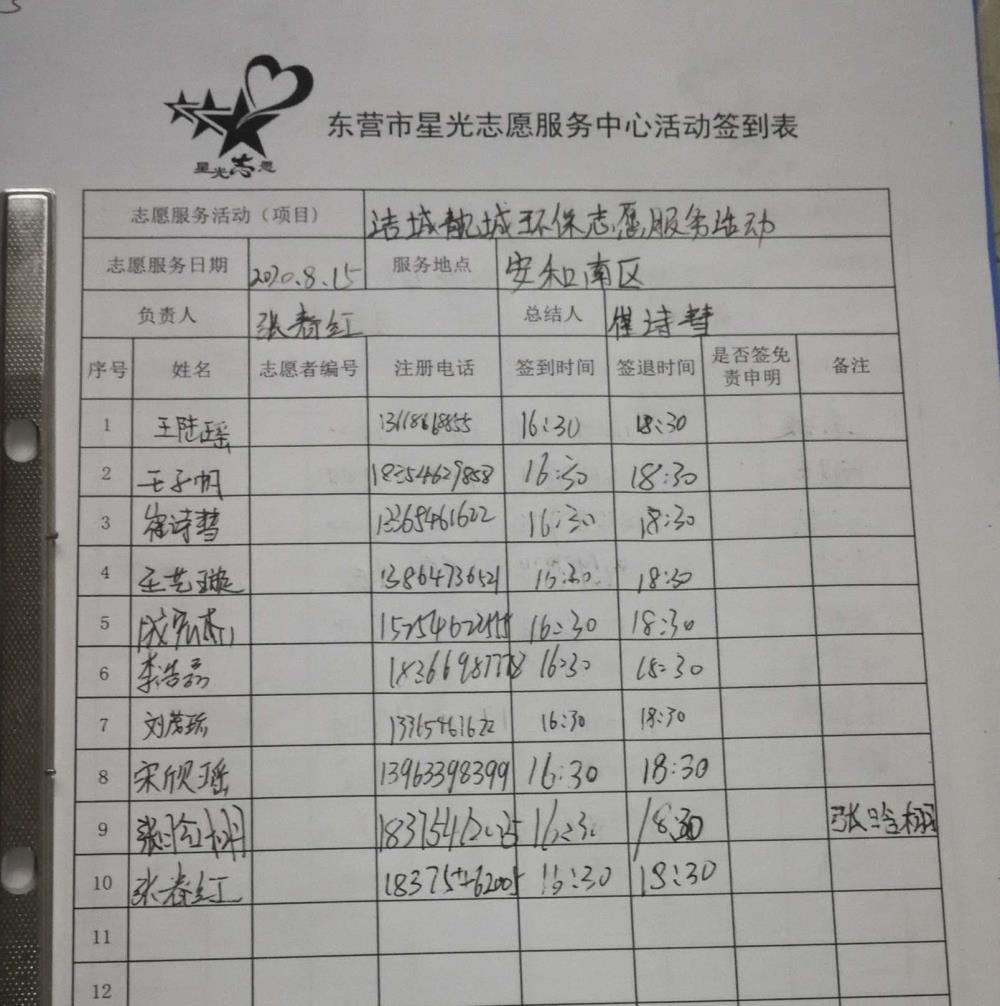 东营市星光志愿服务中心活动签到表
星光志愿
志愿服务活动（项目） 洁城靓城环保志愿服务活动
志愿服务日期 2020.8.15 服务地点 安和南区
负责人 张春红 总结人 崔诗彗
序号 姓名 志愿者编号 注册电话 签到时间 签退时间 是否签免责申明 备注
1 王陆瑶 13618668855 16:30 18:30
2 王子帆 18354629858 16:30 18:30
3 崔诗彗 13365461622 16:30 18:30
4 王艺璇 13864736521 16:30 18:30
5 16:30 18:30
6 李浩磊 18366987778 16:30 18:30
7 13365461622 16:30 18:30
8 宋欣瑶 13963398399 16:30 18:30
9 16:30 18:30
10 张春红 18375462005 16:30 18:30
11
12